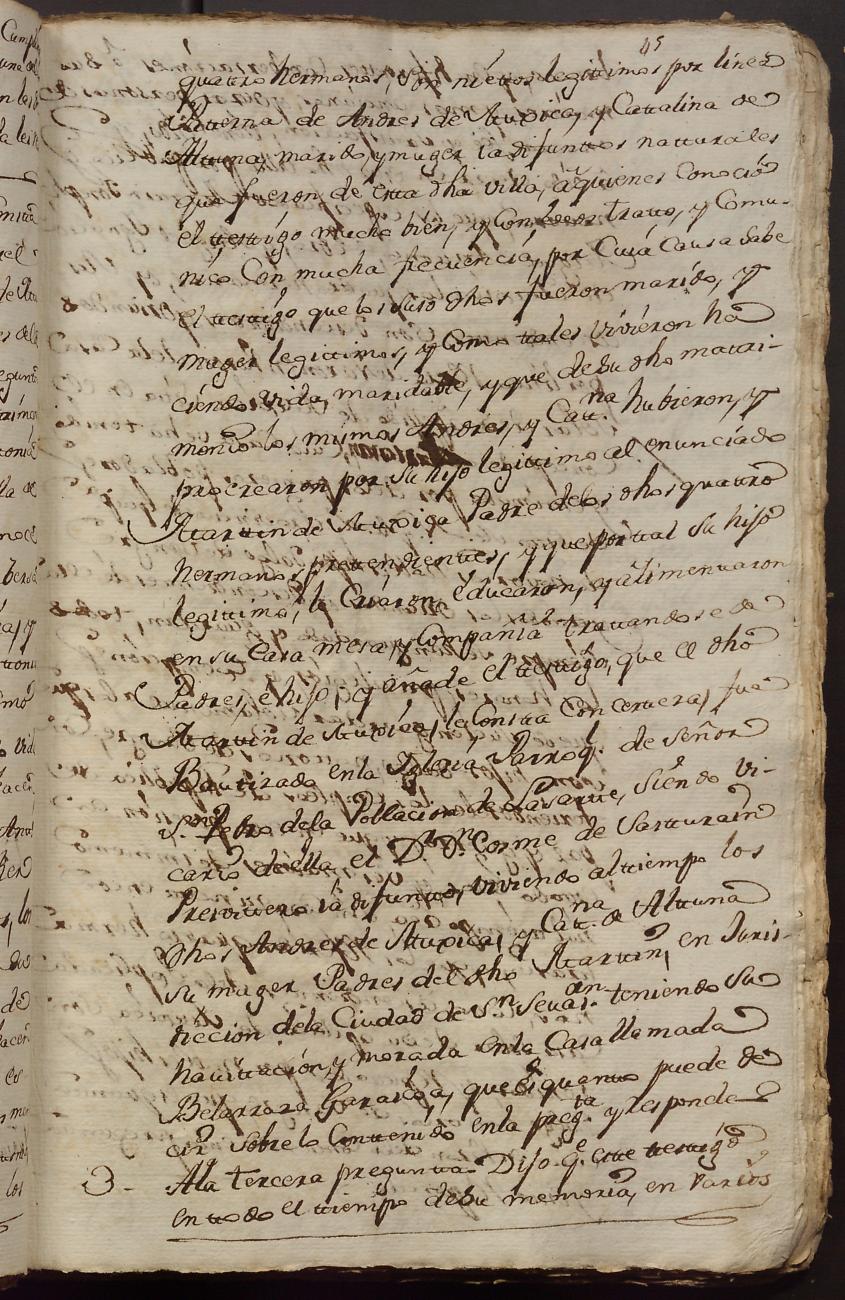 45
quatro hermanos, son nietos legittimos por linea
Paterna de Andres de Atuxica, y Cattalina de
Altuna, marido, y muger ia difuntos natturales
que fueron de esta dha villa, a quienes Conoció
el testigo mucho bien, y Con ellos tratto, y Comu-
nicó Con mucha frecuencia, por Cuiá Causa Sabe
el testigo que los suso dhos fueron marido, y
muger legittimos, y Como tales vivieron ha
ciendo vida maridable, y que de su dho matri-
monio los mismos Andres, y Catt.na hubieron, y
procrearon por su hijo legittimo al enunciado
Martin de Atuxica Padre de los dhos quatro
hermanos prettendientes, y que por tal su hijo
legittimo, le Criaron, educaron, y alimenttaron
en su Casa, mesa, y Compañia trattandose de
Padres, e hijo, y añade el testigo, que el dho
Martin de Atuxica, le Consta Con certeza, fue
Bautizado en la Iglesia Parroq.l de Señor
S.n Pedro de la Poblacion de Lasarte, siendo vi-
cario de ella el D.r D.n Cosme de Sarturain
Presvitero ia difunto, viviendo al tiempo los
dhos Andres de Atuxica, y Catt.na de Altuna
su muger Padres del dho Martin, en Juris-
diccion de la Ciudad de S.n Sevas.an teniendo su
havitacion, y morada en la Casa llamada
Belartaza Garaicoa, que es quanto puede de
cir sobre lo Conttenido en la preg.ta y responde
3 - A la tercera pregunta Dijo q.e este testigo
en todo el tiempo de su memoria, en varios